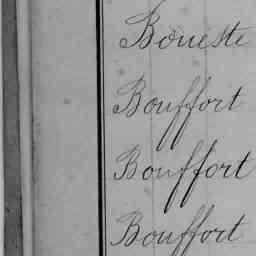 Boueste
Bouffort
Bouffort
Bouffort